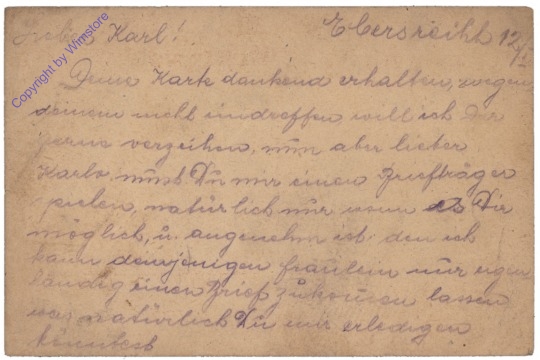 Lieber Karl! Ebersreiht 12/
Deine Karte dankend erhalten, wegen
deinem nicht eindreffen will ich Dir
gerne verzeihen, nun aber lieber
Karl, must Du mir einen Briefträger
spielen, natürlich nur wenn es Dir
möglich, u. angenehm ist. den ich
kann demjenigen fräulein nur eigen
händig einen Brief zukomen lassen
natürlich Du nur erledigen
könntest
Copyright by Wimstore